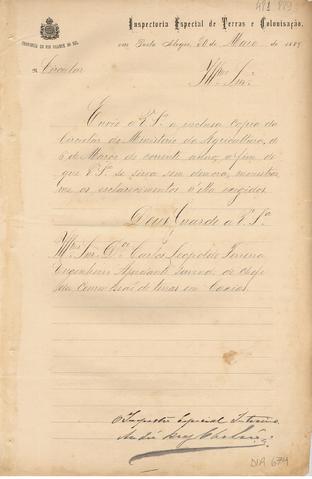 481 883
PROVINCIA DO RIO GRANDE DO SUL
Inspectoria Especial de Terras e Colonisação,
em Porto Alegre, de Março de 1889
Circular
Illmo Snr.
Envio a V.Sa a inclusa copia da
Circular do Ministerio da Agricultura, de
6 de Março do corrente anno, a fim de
que V.Sa se sirva sem demora, ministrar
me os esclarecimentos n'ella exigidos
Deus Guarde a V.Sa
Illmo Snr. Dor Carlos Leopoldo
Engenheiro Ajudante servindo de chefe
da Commissão de terras em Caxias.
O Inspector Especial Interino
André
DIA 674